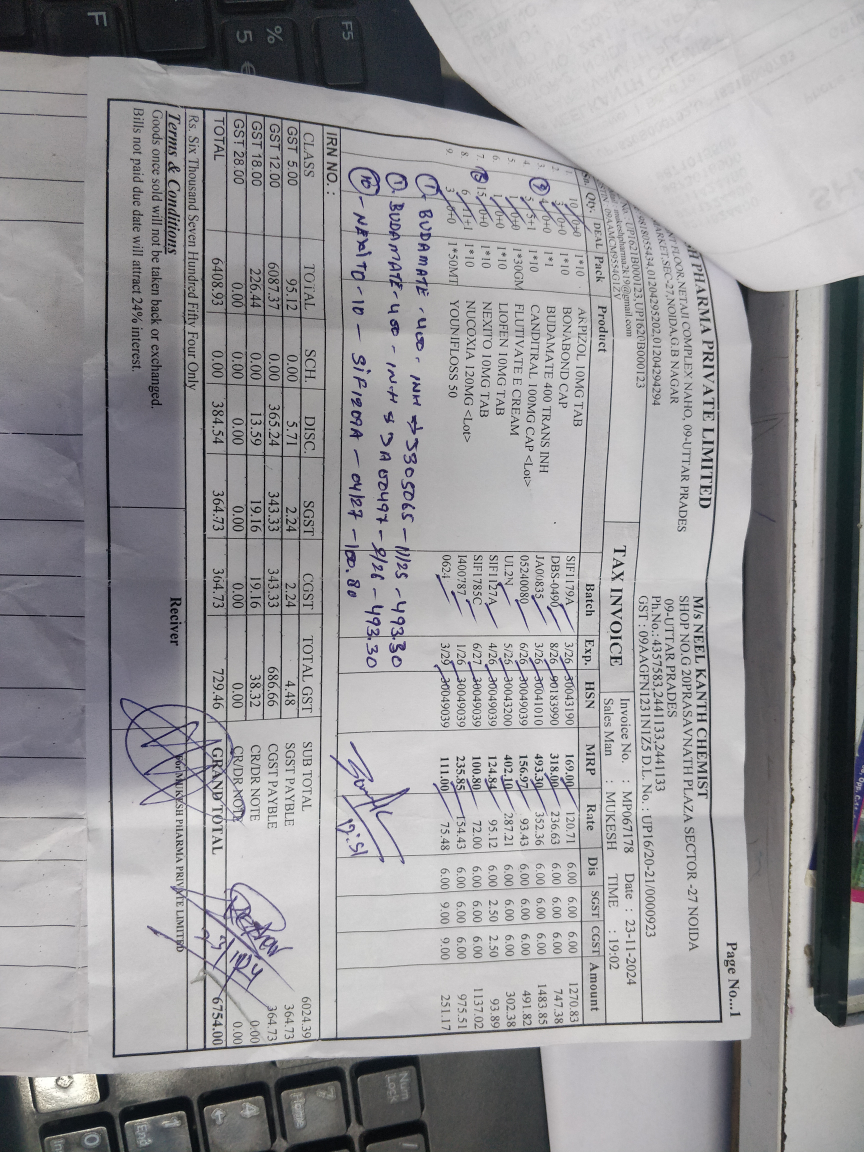 Page No...1
SH PHARMA PRIVATE LIMITED
FLOOR,NETAJI COMPLEX NAHO, 09-UTTAR PRADES
MARKET,SEC-27,NOIDA,G.B NAGAR
9818055434,01204295202,01204294294
No. : UP1621B000123,UP1620B000123
mukeshpharma2819@gmail.com
09AAMCM9554G1ZV
M/s NEEL KANTH CHEMIST
SHOP NO.G 20PRASAVNATH PLAZA SECTOR -27 NOIDA
09-UTTAR PRADES
Ph.No.:4357583,2441133,2441133
GST : 09AAGFN1231N1Z5 D.L. No.: UP16/20-21/0000923
TAX INVOICE
Invoice No. : MP067178 Date : 23-11-2024
Sales Man : MUKESH TIME : 19:02
Qty. DEAL Pack Product Batch Exp. HSN MRP Rate Dis SGST CGST Amount
10 0+0 1*10 AKPIZOL 10MG TAB SIF1179A 3/26 30043190 169.00 120.71 6.00 6.00 6.00 1270.83
2. 0+0 1*10 BONABOND CAP DBS-0490 8/26 90183990 318.00 236.63 6.00 6.00 6.00 747.38
3. 0+0 1*1 BUDAMATE 400 TRANS INH JA00835 3/26 30041010 493.30 352.36 6.00 6.00 6.00 1483.85
4. 5+1 1*10 CANDITRAL 100MG CAP <Lot> 05240080 6/26 30049039 156.97 93.43 6.00 6.00 6.00 491.82
5. 0+0 1*30GM FLUTIVATE E CREAM UL2N 5/26 30043200 402.10 287.21 6.00 6.00 6.00 302.38
6. 1 0+0 1*10 LIOFEN 10MG TAB SIF1127A 4/26 30049039 124.84 95.12 6.00 2.50 2.50 93.89
7. 15 0+0 1*10 NEXITO 10MG TAB SIF1785C 6/27 30049039 100.80 72.00 6.00 6.00 6.00 1137.02
8. 6 11+1 1*10 NUCOXIA 120MG <Lot> I400787 1/26 30049039 235.85 154.43 6.00 6.00 6.00 975.51
9. 3 0+0 1*50MT YOUNIFLOSS 50 0624 3/29 30049039 111.00 75.48 6.00 9.00 9.00 251.17
① - BUDAMATE - 400 - INH - 3305065 - 11/25 - 493.30
① - BUDAMATE - 400 - INH - JA00497 - 9/26 - 493.30
⑩ - NEXITO - 10 - SIF1209A - 04/27 - 100.80
IRN NO. :
CLASS TOTAL SCH. DISC. SGST CGST TOTAL GST
GST 5.00 95.12 0.00 5.71 2.24 2.24 4.48
GST 12.00 6087.37 0.00 365.24 343.33 343.33 686.66
GST 18.00 226.44 0.00 13.59 19.16 19.16 38.32
GST 28.00 0.00 0.00 0.00 0.00 0.00 0.00
TOTAL 6408.93 0.00 384.54 364.73 364.73 729.46
SUB TOTAL 6024.39
SGST PAYBLE 364.73
CGST PAYBLE 364.73
CR/DR NOTE 0.00
CR/DR NOTE 0.00
GRAND TOTAL 6754.00
Rs. Six Thousand Seven Hundred Fifty Four Only
Terms & Conditions
Goods once sold will not be taken back or exchanged.
Bills not paid due date will attract 24% interest.
Reciver
For MUKESH PHARMA PRIVATE LIMITED
F5
%
5
€
F
Num Lock
7
Home
4
1
End
0
Ins